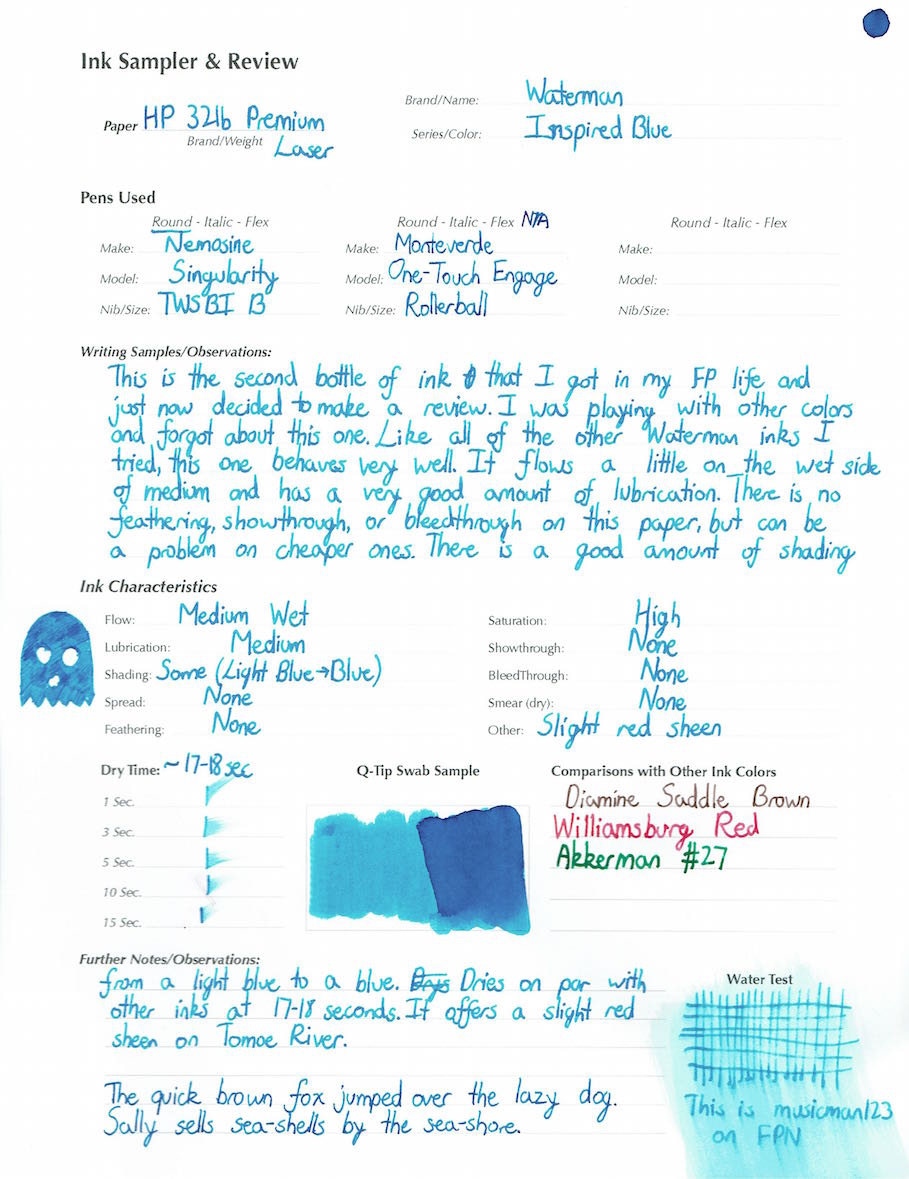 Ink Sampler & Review
Brand/Name: Waterman
Paper HP 32lb Premium
Brand/Weight Laser
Series/Color: Inspired Blue
Pens Used
Round - Italic - Flex
Make: Nemosine
Model: Singularity
Nib/Size: TWSBI B
Round - Italic - Flex N/A
Make: Monteverde
Model: One-Touch Engage
Nib/Size: Rollerball
Round - Italic - Flex
Make:
Model:
Nib/Size:
Writing Samples/Observations:
This is the second bottle of ink that I got in my FP life and
just now decided to make a review. I was playing with other colors
and forgot about this one. Like all of the other Waterman inks I
tried, this one behaves very well. It flows a little on the wet side
of medium and has a very good amount of lubrication. There is no
feathering, showthrough, or bleedthrough on this paper, but can be
a problem on cheaper ones. There is a good amount of shading
Ink Characteristics
Flow: Medium Wet
Lubrication: Medium
Shading: Some (Light Blue→Blue)
Spread: None
Feathering: None
Saturation: High
Showthrough: None
BleedThrough: None
Smear (dry): None
Other: Slight red sheen
Dry Time: ~17-18 sec
1 Sec.
3 Sec.
5 Sec.
10 Sec.
15 Sec.
Q-Tip Swab Sample
Comparisons with Other Ink Colors
Diamine Saddle Brown
Williamsburg Red
Akkerman #27
Further Notes/Observations:
from a light blue to a blue. Drys Dries on par with
other inks at 17-18 seconds. It offers a slight red
sheen on Tomoe River.
The quick brown fox jumped over the lazy dog.
Sally sells sea-shells by the sea-shore.
Water Test
This is musicman123
on FPN